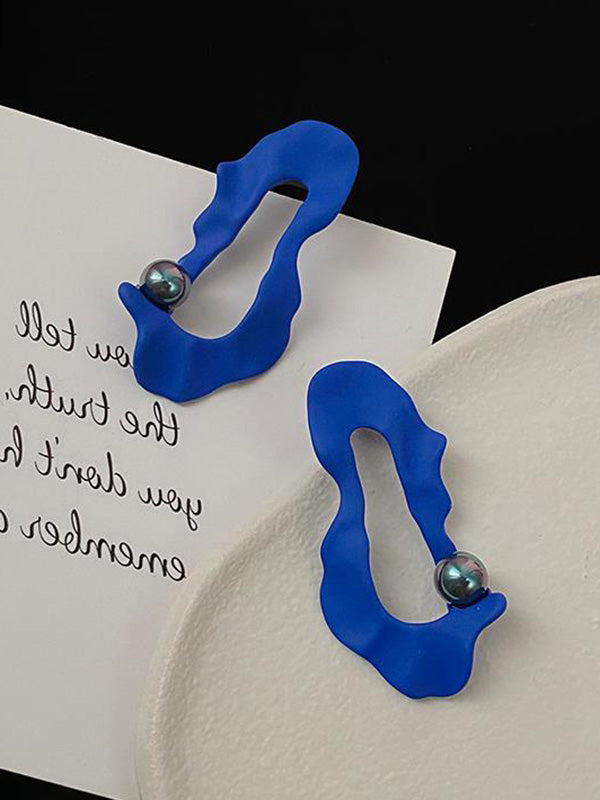 you tell
the truth,
you don't h
emember